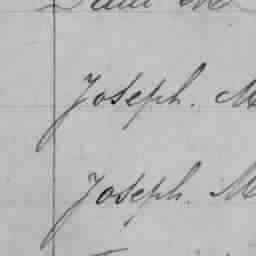 Joseph. M
Joseph. M